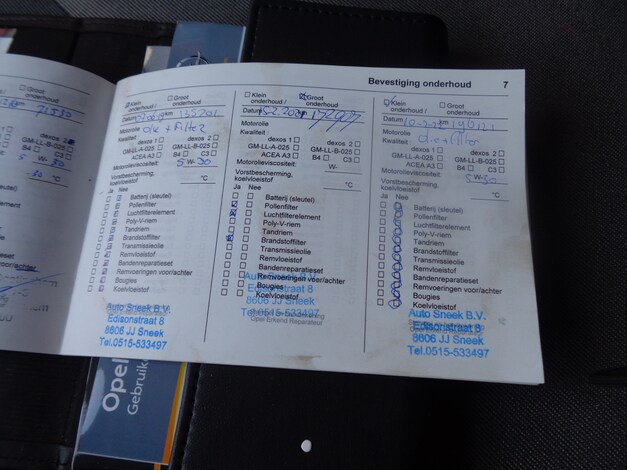 Bevestiging onderhoud 7
Groot
onderhoud
71530
dexos 2
GM-LL-B-025
C3
30
Klein
onderhoud /
Groot
onderhoud
Datum km 135201
Motorolie olie + Filter
Kwaliteit:
dexos 1 dexos 2
GM-LL-A-025 GM-LL-B-025
ACEA A3 B4 C3
Motorolieviscositeit: 5 W- 30
Vorstbescherming,
koelvloeistof: °C
Ja Nee
Batterij (sleutel)
Pollenfilter
Luchtfilterelement
Poly-V-riem
Tandriem
Brandstoffilter
Transmissieolie
Remvloeistof
Bandenreparatieset
Remvoeringen voor/achter
Bougies
Koelvloeistof
Auto Sneek B.V.
Edisonstraat 8
8606 JJ Sneek
Tel.0515-533497
Klein
onderhoud /
Groot
onderhoud
Datum km
Motorolie
Kwaliteit:
dexos 1 dexos 2
GM-LL-A-025 GM-LL-B-025
ACEA A3 B4 C3
Motorolieviscositeit: W-
Vorstbescherming,
koelvloeistof °C
Ja Nee
Batterij (sleutel)
Pollenfilter
Luchtfilterelement
Poly-V-riem
Tandriem
Brandstoffilter
Transmissieolie
Remvloeistof
Bandenreparatieset
Remvoeringen voor/achter
Bougies
Koelvloeistof
Auto Sneek B.V.
Edisonstraat 8
8606 JJ Sneek
Tel.0515-533497
Opel Erkend Reparateur
Klein
onderhoud /
Groot
onderhoud
Datum km
Motorolie
Kwaliteit: olie + filter
dexos 1 dexos 2
GM-LL-A-025 GM-LL-B-025
ACEA A3 B4 C3
Motorolieviscositeit: 5 W-30
Vorstbescherming,
koelvloeistof °C
Ja Nee
Batterij (sleutel)
Pollenfilter
Luchtfilterelement
Poly-V-riem
Tandriem
Brandstoffilter
Transmissieolie
Remvloeistof
Bandenreparatieset
Remvoeringen voor/achter
Bougies
Koelvloeistof
Auto Sneek B.V.
Edisonstraat 8
8606 JJ Sneek
Tel.0515-533497
Opel
Gebruike